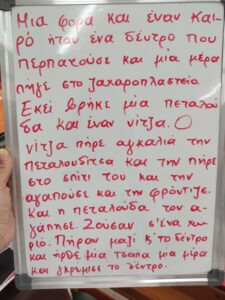 Μια φορα και έναν Και-
ρό ήταν ένα δέντρο που
περπατούσε και μια μέρα
πήγε στο ζαχαροπλαστείο
Εκεί βρήκε μία πεταλού
δα και έναν νίτζα. Ο
νίτζα πήρε αγκαλιά την
πεταλουδίτσα και την πήρε
στο σπίτι του και την
αγαπούσε και την φρόντιζε.
Και η πεταλούδα τον α-
γάπησε. Ζούσαν σ'ένα χω-
ριο. Πήραν μαζί κ' το δέντρο
και ήρθε μία τσαπα μια μέρα
και γκρέμισε το δέντρο.